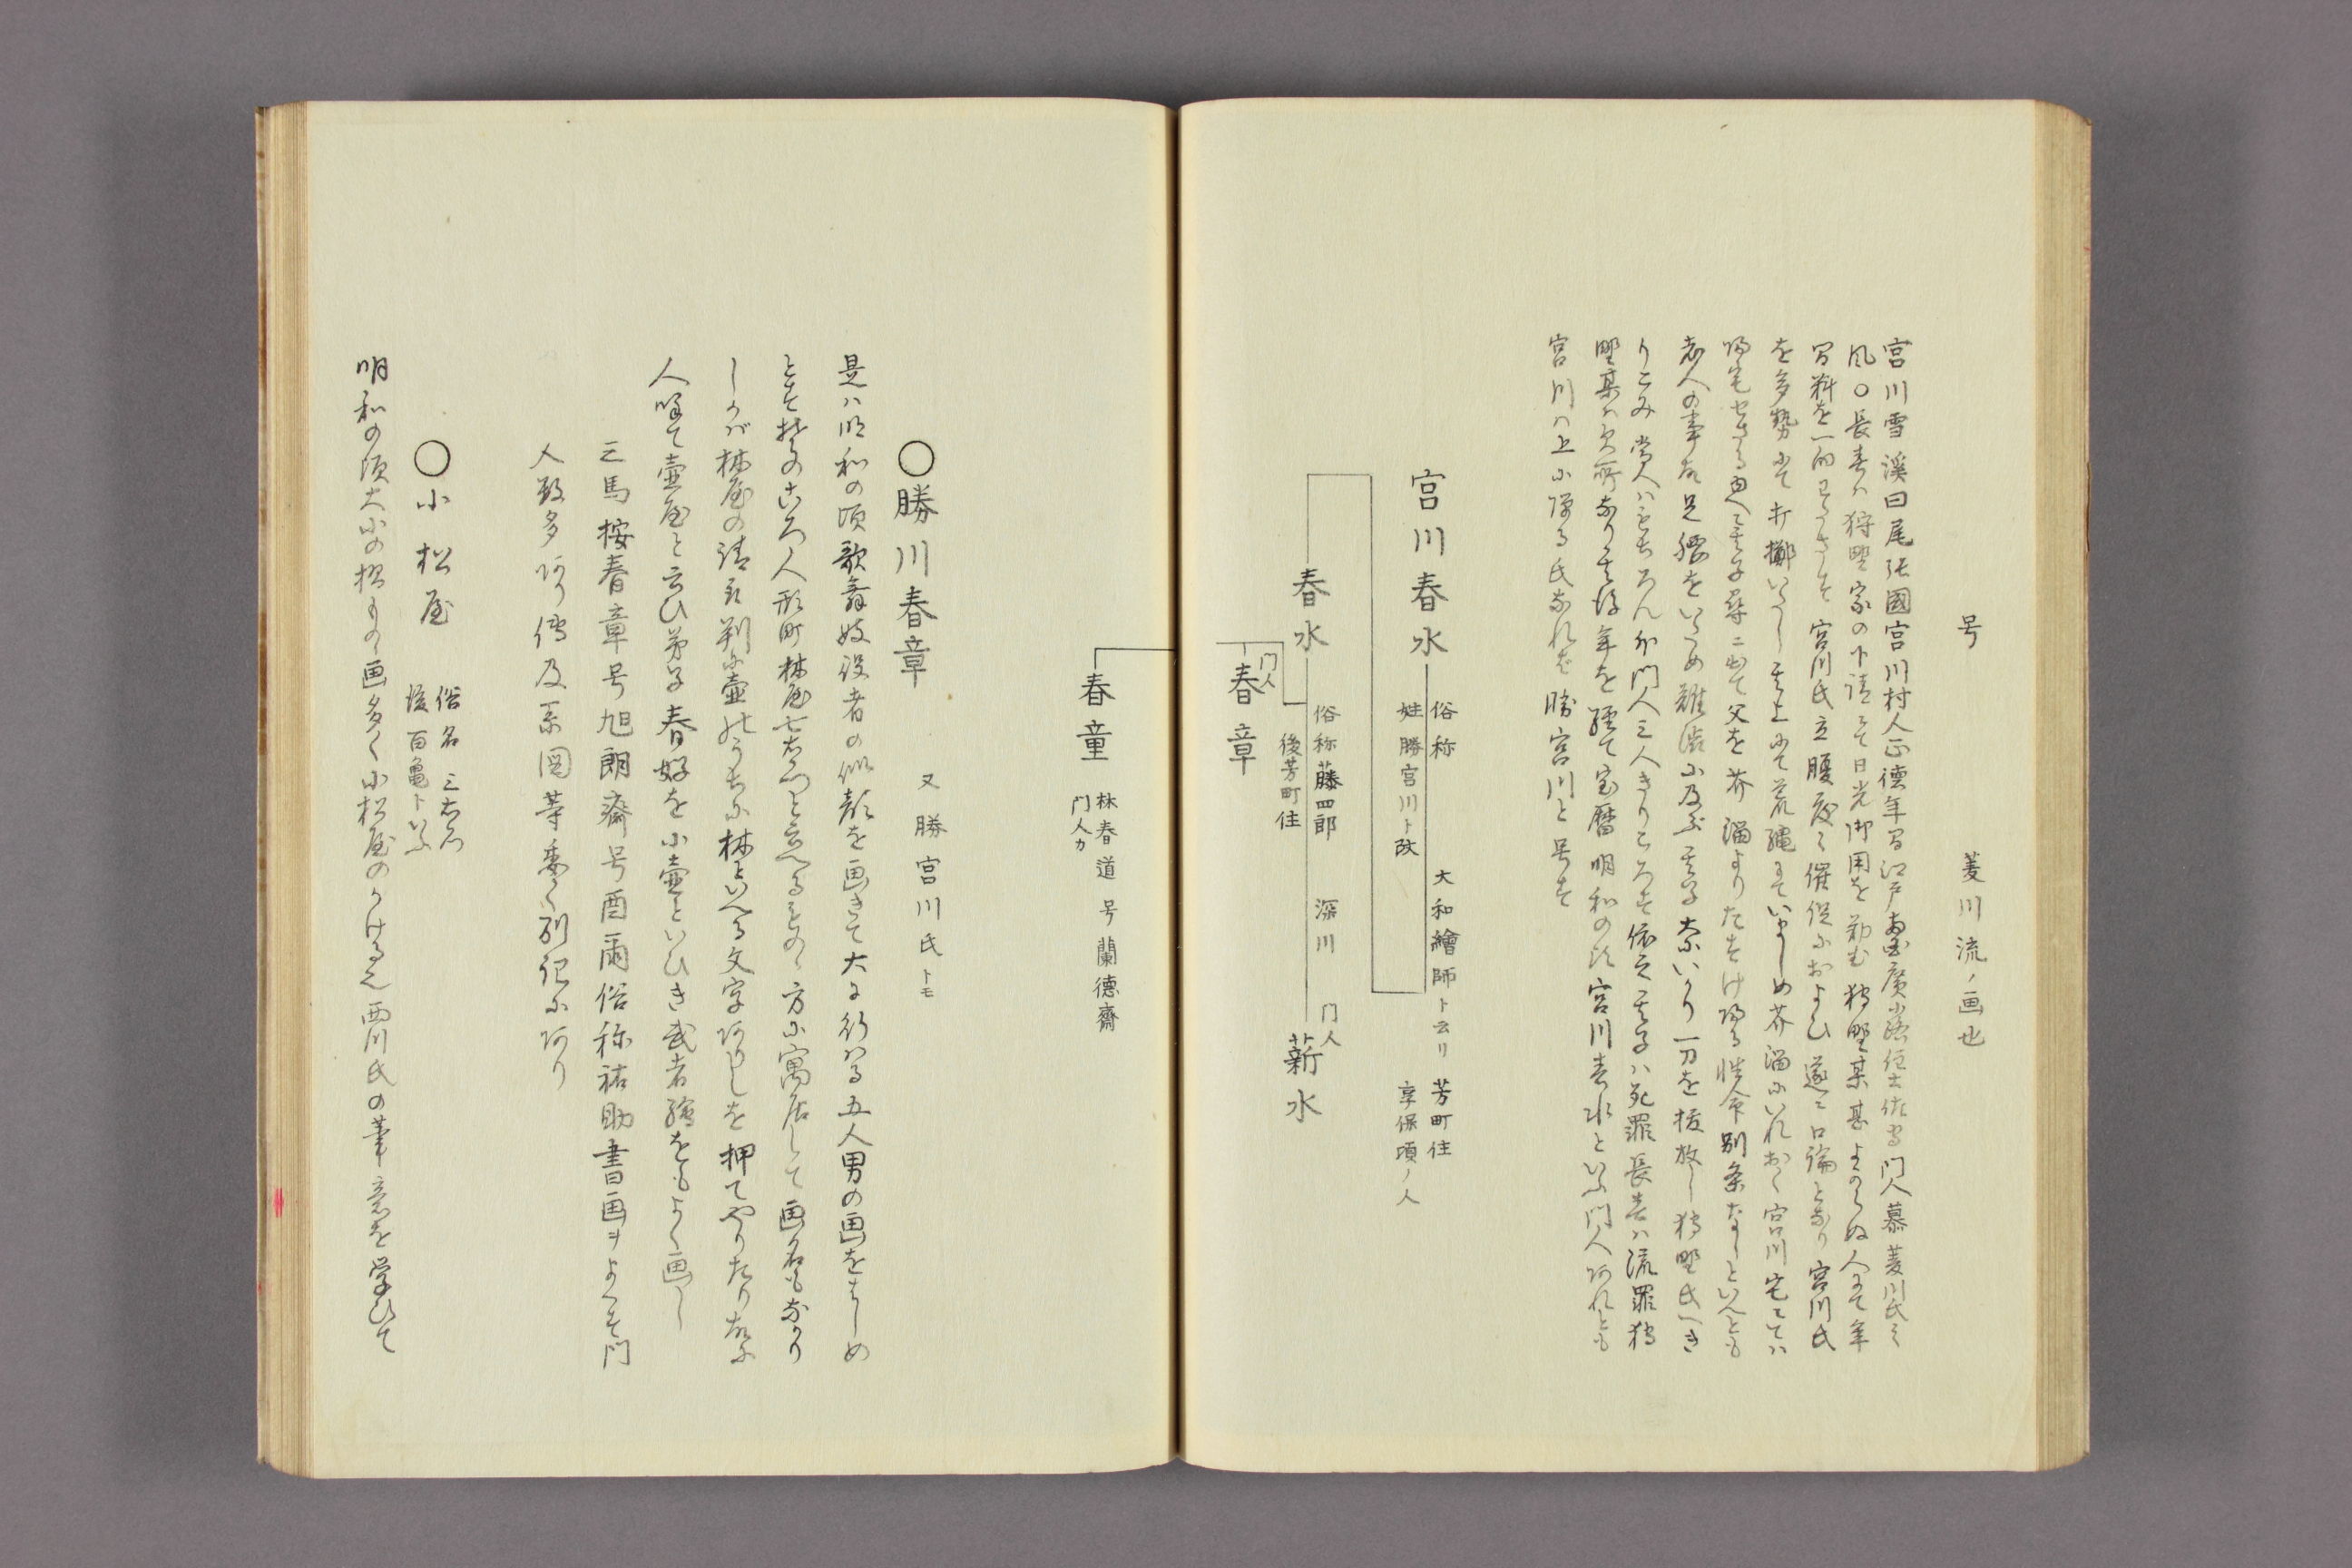 号　菱川流ノ画也
宮川雪溪曰尾張國宮川村人正德年間江戸両国廣小路住土佐家門人慕菱川氏之
風〇長春ハ狩野家の下請にて日光御用を勤む狩野某甚よからぬ人にて年
宮川氏立腹度々催促におよひ遂ニ口論となり宮川氏
を多勢にて打擲いたし其上にて荒縄にていましめ芥溜にいれおく宮川宅にては
帰宅せさるゆへ其子尋ニ出て父を芥溜よりたすけ帰る性命別条なしといへとも
老人の事故足腰をいため難渋に及ふ其子大にいかり一刀を抜放し狩野氏へき
りこみ當人ハもちろん外門人三人きりころす依之其子ハ死罪長春ハ流罪狩
野某ハ欠所なり其後年を経て宝暦明和の比宮川春水といふ門人ありれとも
宮川ハ上に障る氏なれば勝宮川と号す
宮川春水　俗称　大和繪師ト云リ　芳町住
姓勝宮川ト改　享保頃ノ人
春水　俗称藤四郎　深川
後芳町住
門人　薪水
門人　春章
春童　林春道　号蘭德齋
門人カ
〇勝川春章　又勝宮川氏トモ
是ハ明和の頃歌舞妓役者の似顔を画きて大に行はる五人男の画をはしめ
とす其のころ人形町林屋七右衛門と云へるものゝ方に寓居して画名もなかり
しかば林屋の請取判に壷のうちに林といへる文字ありしを押てやりたり故に
人呼て壷屋と云ひ弟子春好を小壷といひき武者繪をもよく画し
三馬按春章号旭朗齋号酉爾俗称祐助書画ヲよくす門
人数多あり傳及系図等委く別記にあり
〇小松屋　俗名三右衛門
後百亀トいふ
明和の頃大小の摺もの画多く小松屋のかける也西川氏の筆意を学ひて